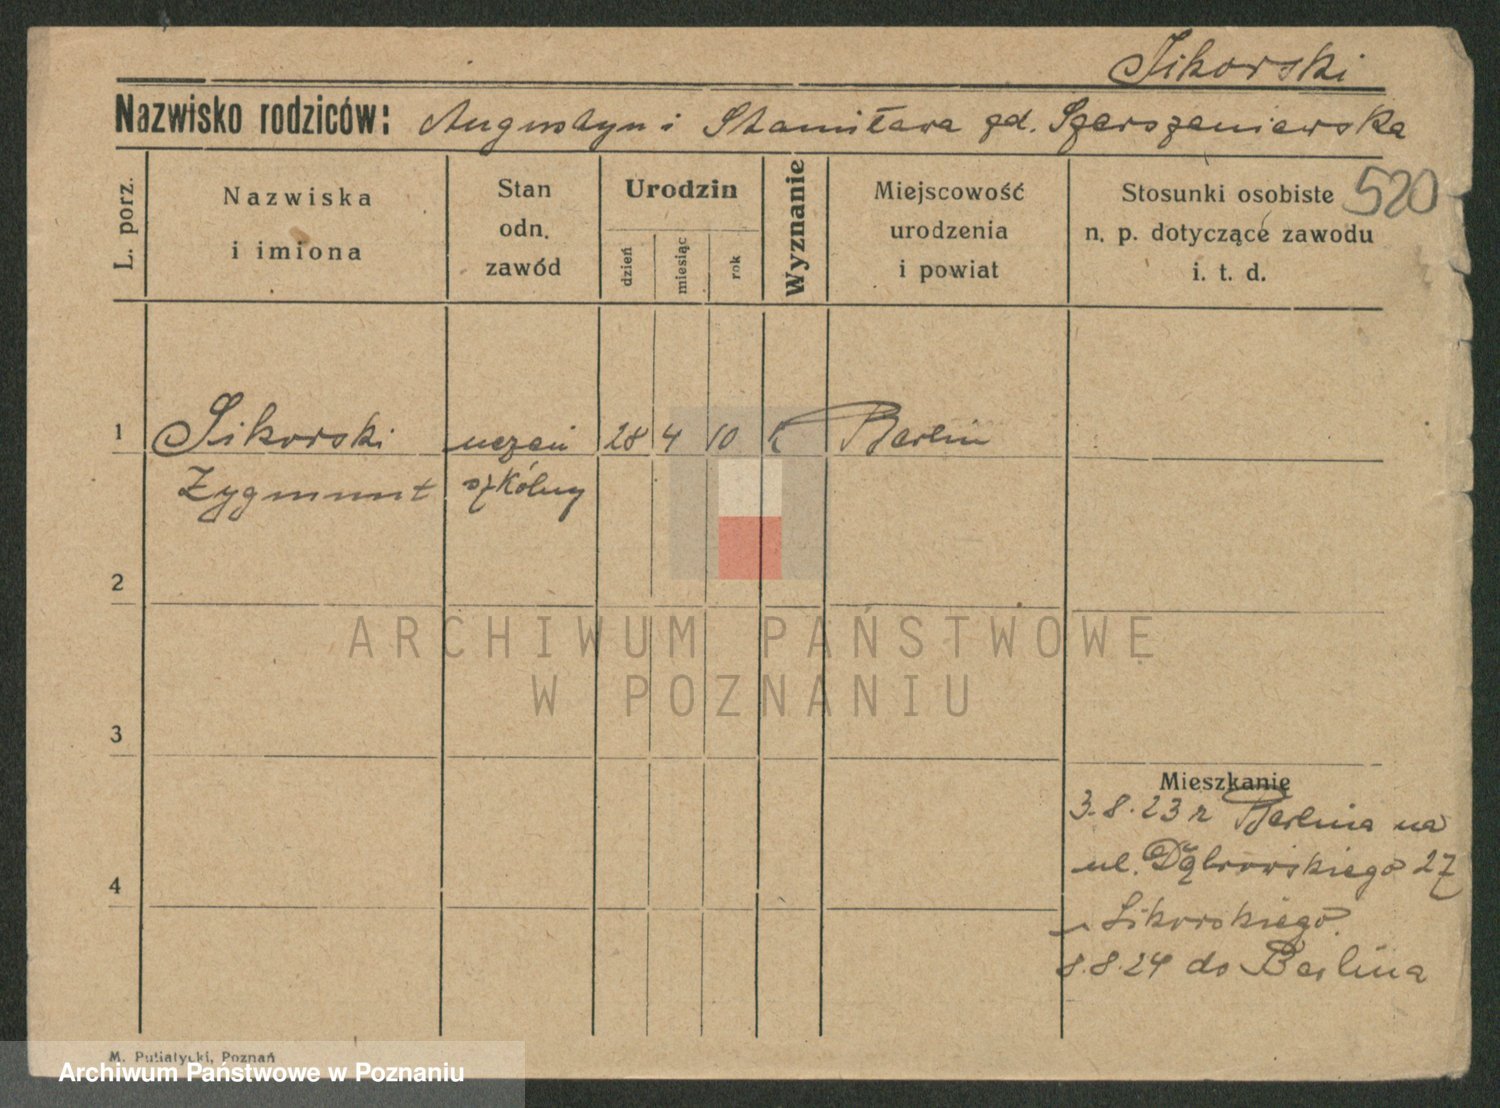 Sikorski
Nazwisko rodziców: Augustyn i Stanisława zd. Szerszeniewska
L. porz.
Nazwiska
i imiona
Stan
odn.
zawód
Urodzin
dzień
miesiąc
rok
Wyznanie
Miejscowość
urodzenia
i powiat
Stosunki osobiste
n. p. dotyczące zawodu
i. t. d.
520
1 Sikorski uczeń 28 4 10 k Berlin
Zygmunt szkólny
2
3
4
ARCHIWUM PAŃSTWOWE
W POZNANIU
Mieszkanie
3.8.23 z Berlina na
ul. Dąbrowskiego 27
u Sikorskiego.
8.8.24 do Berlina
M. Putiatycki, Poznań
Archiwum Państwowe w Poznaniu